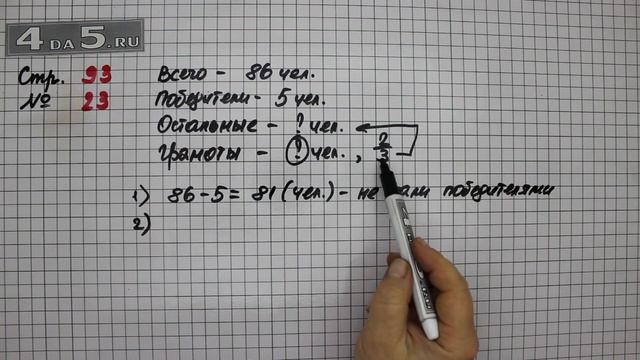 4DA5.RU
Стр. 93
№ 23
Всего - 86 чел.
Победители - 5 чел.
Остальные - ? чел.
Грамоты - ? чел., 2/3
1) 86-5= 81 (чел.) - не победителями
2)